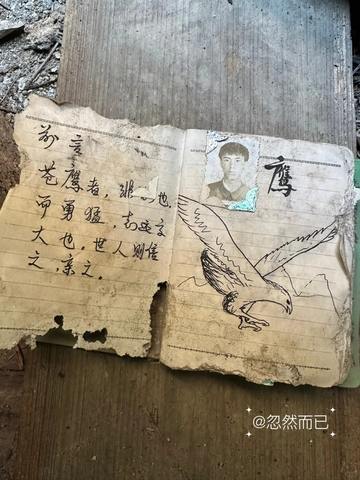 前言
苍鹰者，非　也，
而勇猛，志　之
大也，世人则信
之，亲之。
鹰
@忽然而已